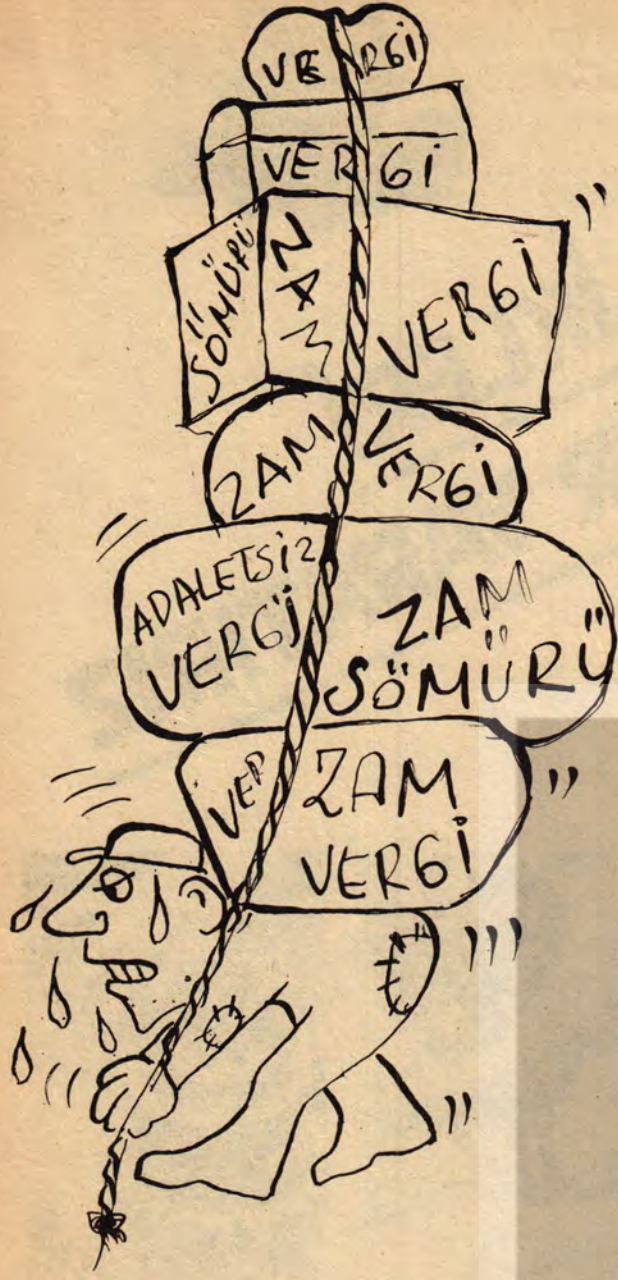 VERGİ
VERGİ
SÖMÜRÜ
ZAM
VERGİ
ZAM
VERGİ
ADALETSİZ
VERGİ
ZAM
SÖMÜRÜ
VER
ZAM
VERGİ